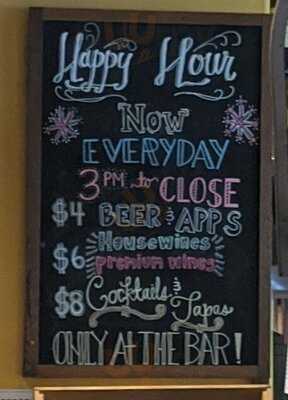 Happy Hour
Now
EVERYDAY
3 PM to CLOSE
$4 BEER & APPS
Housewines
$6 premium wines
$8 Cocktails & Tapas
ONLY AT THE BAR!